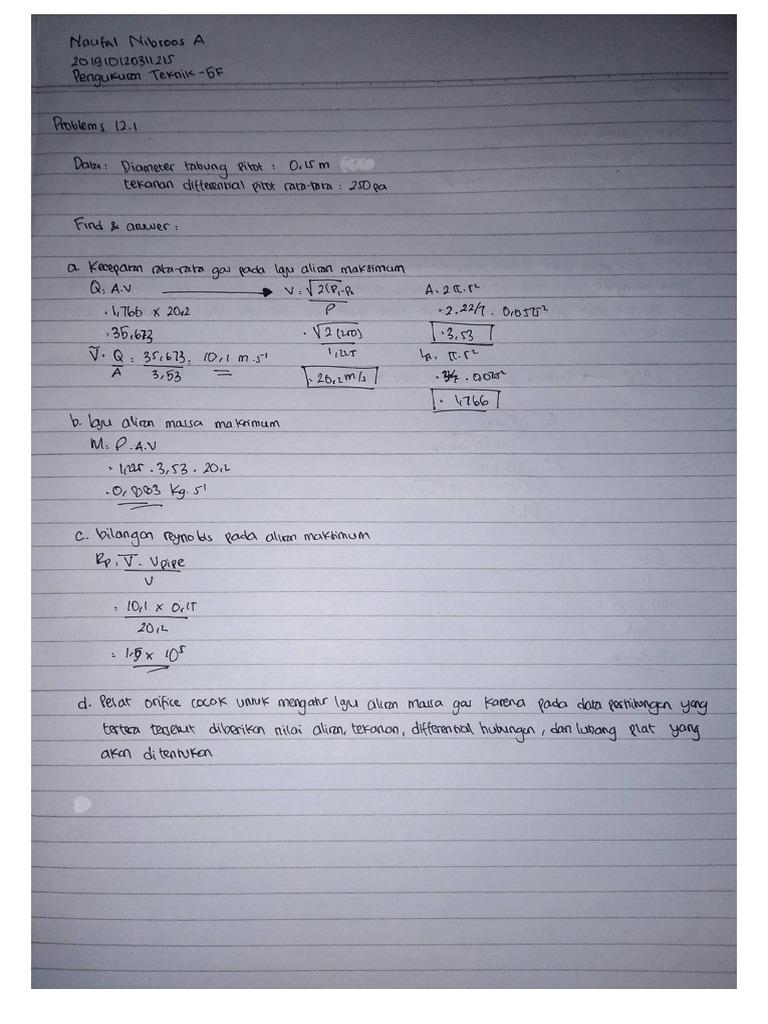 Naufal Nibroos A
201910120311215
Pengukuran Teknik - 5F
Problems 12.1
Data : Diameter tabung pitot : 0,15 m
tekanan differential pitot rata-rata : 250 pa
Find & answer :
a. Kecepatan rata-rata gas pada laju aliran maksimum
Q = A.V → V = √2(P1-P2 / ρ A = 2π.r²
= 1,766 x 20,2 = 2.22/7 . 0,075²
= 35,673 = √2(250) / 1,225 = 3,53
V̅ = Q / A = 35,673 / 3,53 = 10,1 m.s¹ = 20,2 m/s LA = π.r²
. 0,075²
= 1,766
b. laju aliran massa maksimum
M = ρ.A.V
= 1,225 . 3,53 . 20,2
= 0,883 Kg.s¹
c. bilangan reynolds pada aliran maksimum
Rp = V̅ . Vpipe / V
= 10,1 x 0,15 / 20,2
= 1,5 x 10⁵
d. Pelat orifice cocok untuk mengatur laju aliran massa gas karena pada data perhitungan yang
tertera tersebut diberikan nilai aliran, tekanan, differential hubungan, dan lubang plat yang
akan ditentukan